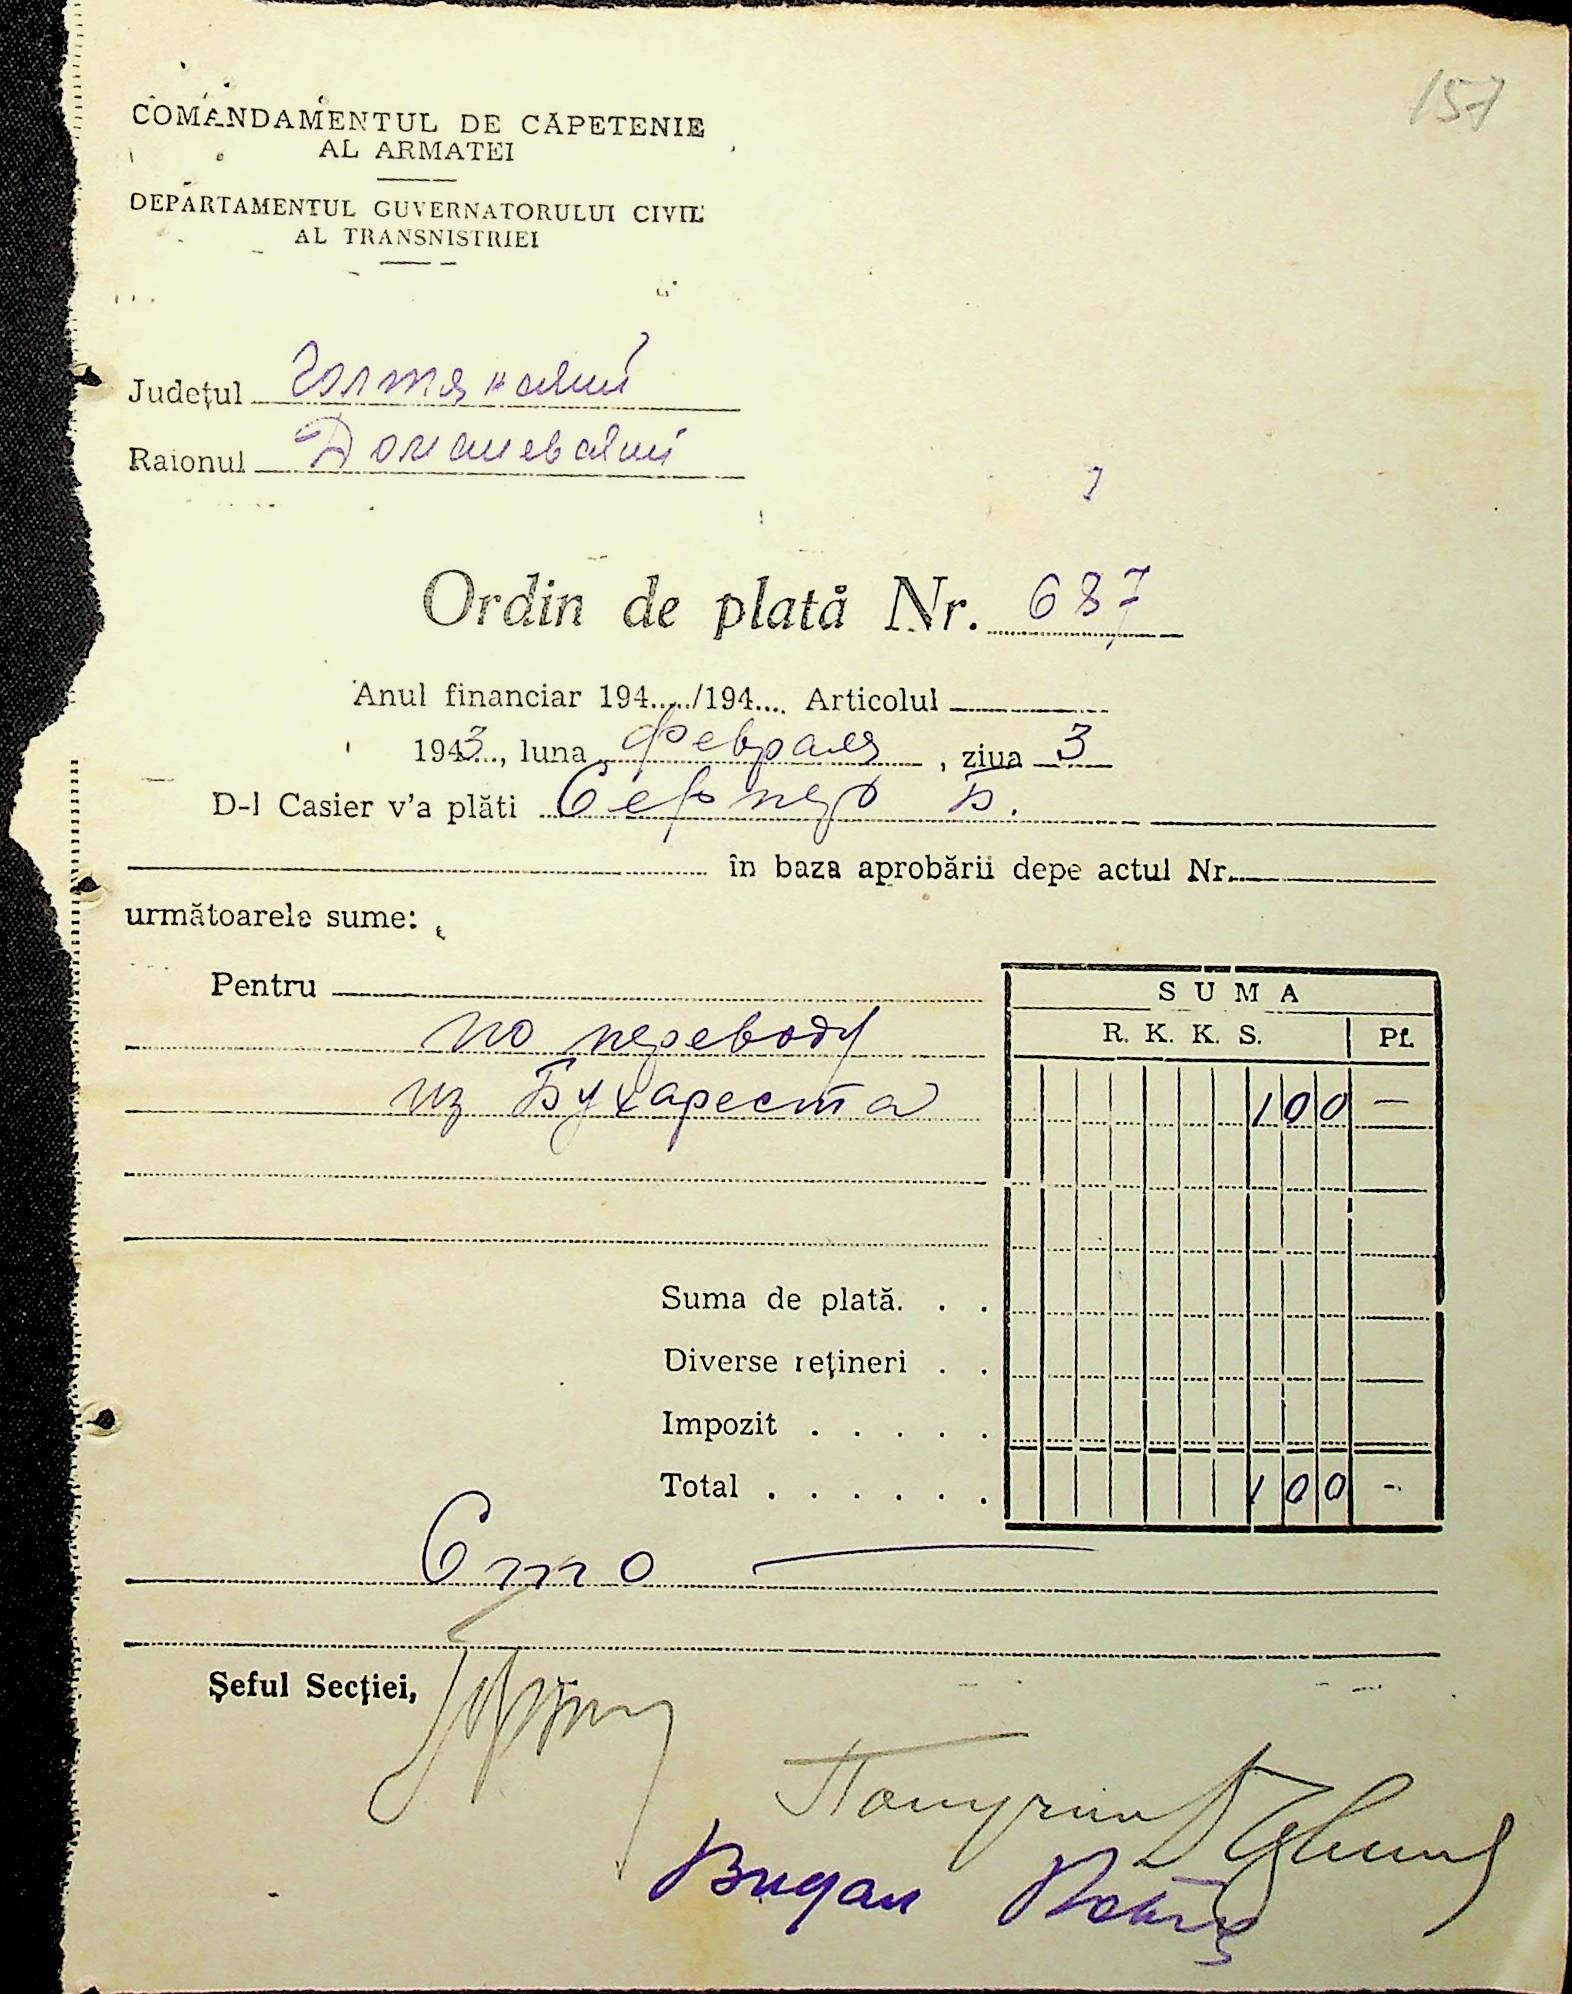 157
COMANDAMENTUL DE CAPETENIE
AL ARMATEI
DEPARTAMENTUL GUVERNATORULUI CIVIL
AL TRANSNISTRIEI
Județul Голтянский
Raionul Доманевский
Ordin de plată Nr. 687
Anul financiar 194...../194.... Articolul
1943..., luna Февраля, ziua 3
D-l Casier v'a plăti Б.
în baza aprobării depe actul Nr.
următoarele sume:
Pentru
SUMA
R. K. K. S. Pf.
по переводу
из Бухареста 100 —
Suma de plată. . .
Diverse rețineri . .
Impozit . . . . .
Total . . . . . . 100 -
Сто —
Șeful Secției,
Получил
Bugan